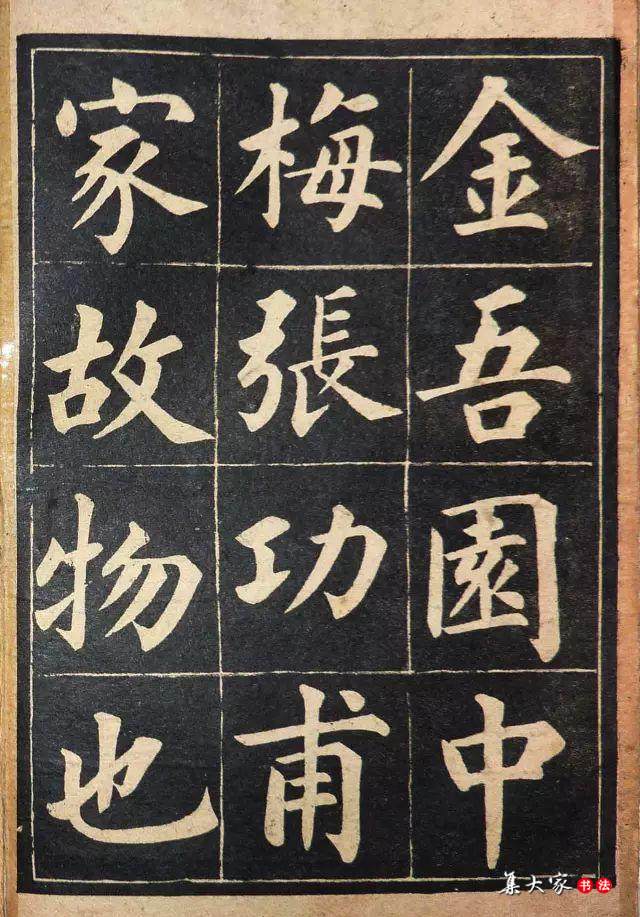 金吾園中
梅張功甫
家故物也
集大家书法